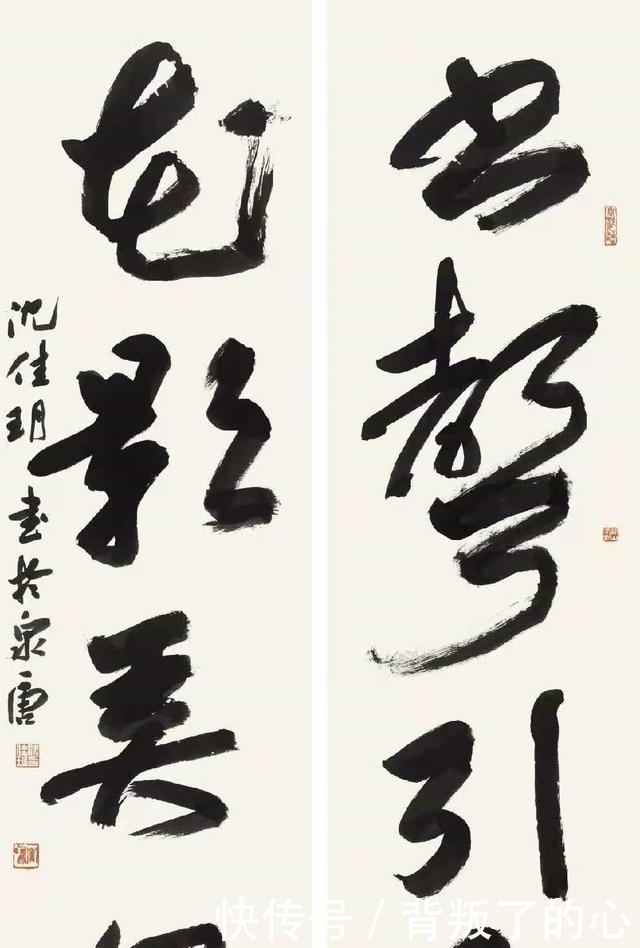 书聲引
花影美
沈佳玥書於泉唐
快传号 / 背叛了的心